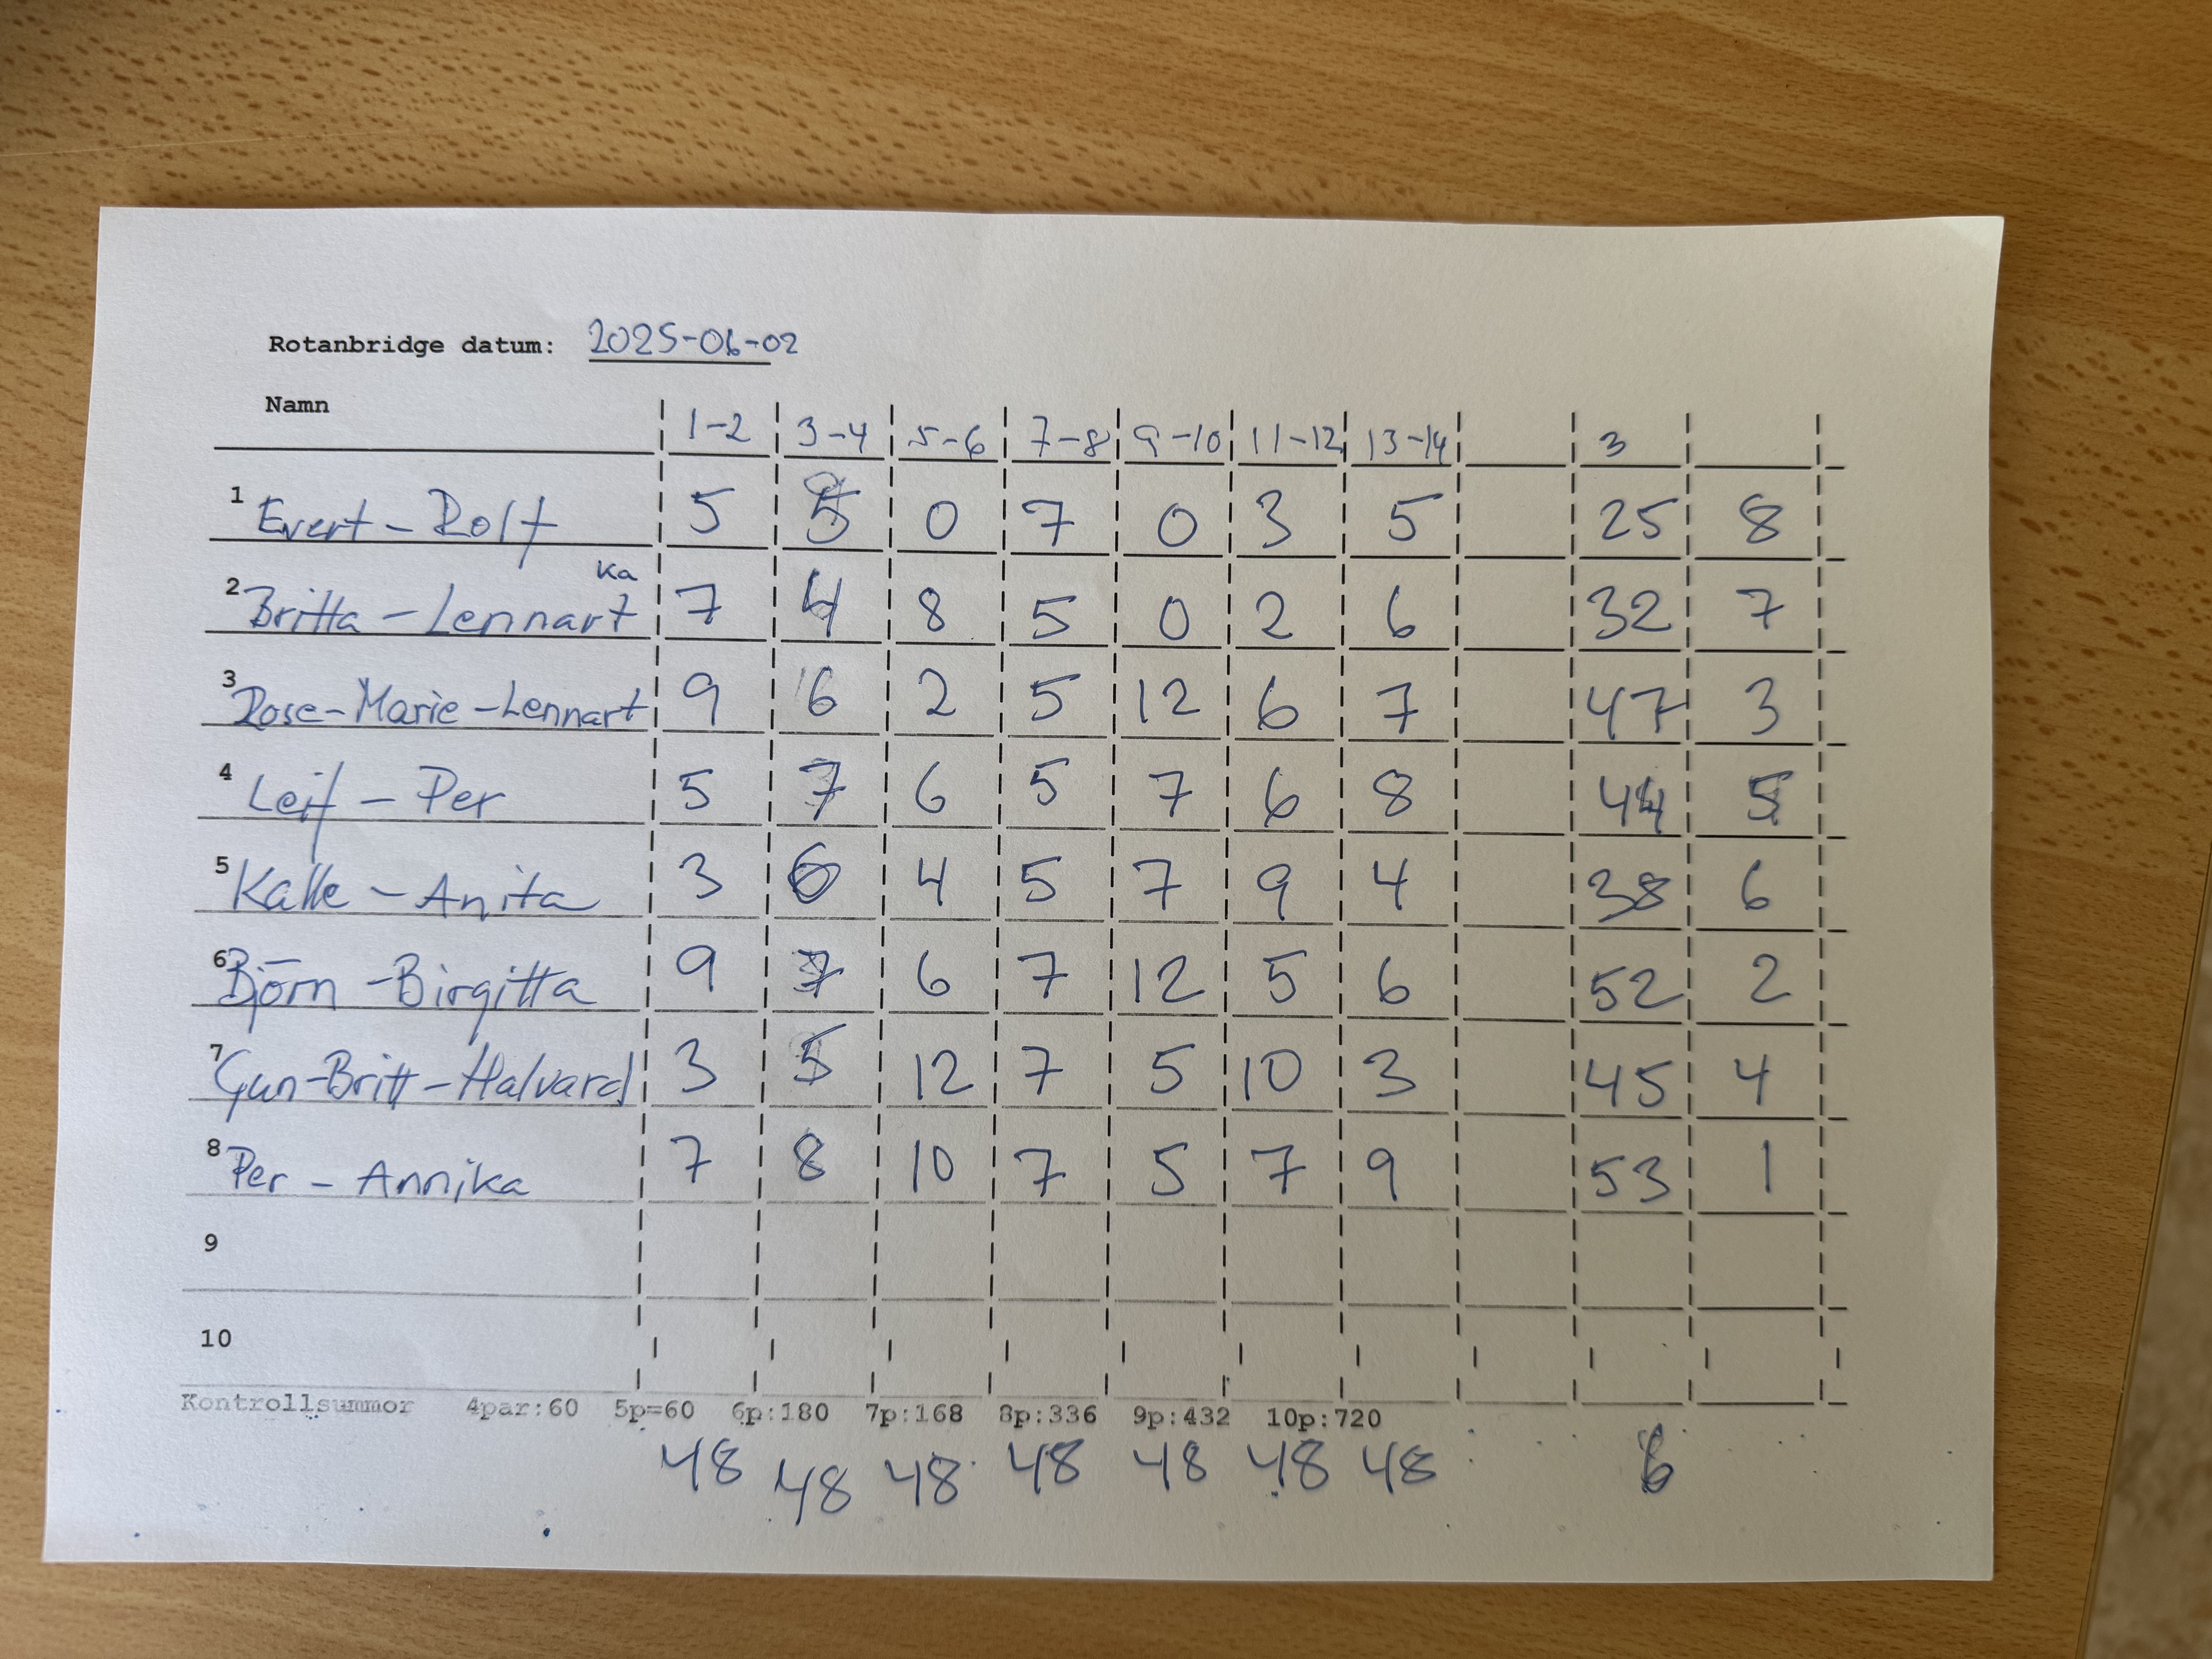 Rotanbridge datum: 2025-06-02
Namn 1-2 3-4 5-6 7-8 9-10 11-12 13-14 3
1 Evert - Rolf 5 5 0 7 0 3 5 25 8
2 Britta - Lennart Ka 7 4 8 5 0 2 6 32 7
3 Rose-Marie - Lennart 9 6 2 5 12 6 7 47 3
4 Leif - Per 5 7 6 5 7 6 8 44 5
5 Kalle - Anita 3 6 4 5 7 9 4 38 6
6 Björn - Birgitta 9 7 6 7 12 5 6 52 2
7 Gun-Britt - Halvard 3 5 12 7 5 10 3 45 4
8 Per - Annika 7 8 10 7 5 7 9 53 1
9
10
Kontrollsummor 4par:60 5p=60 6p:180 7p:168 8p:336 9p:432 10p:720
48 48 48 48 48 48 48